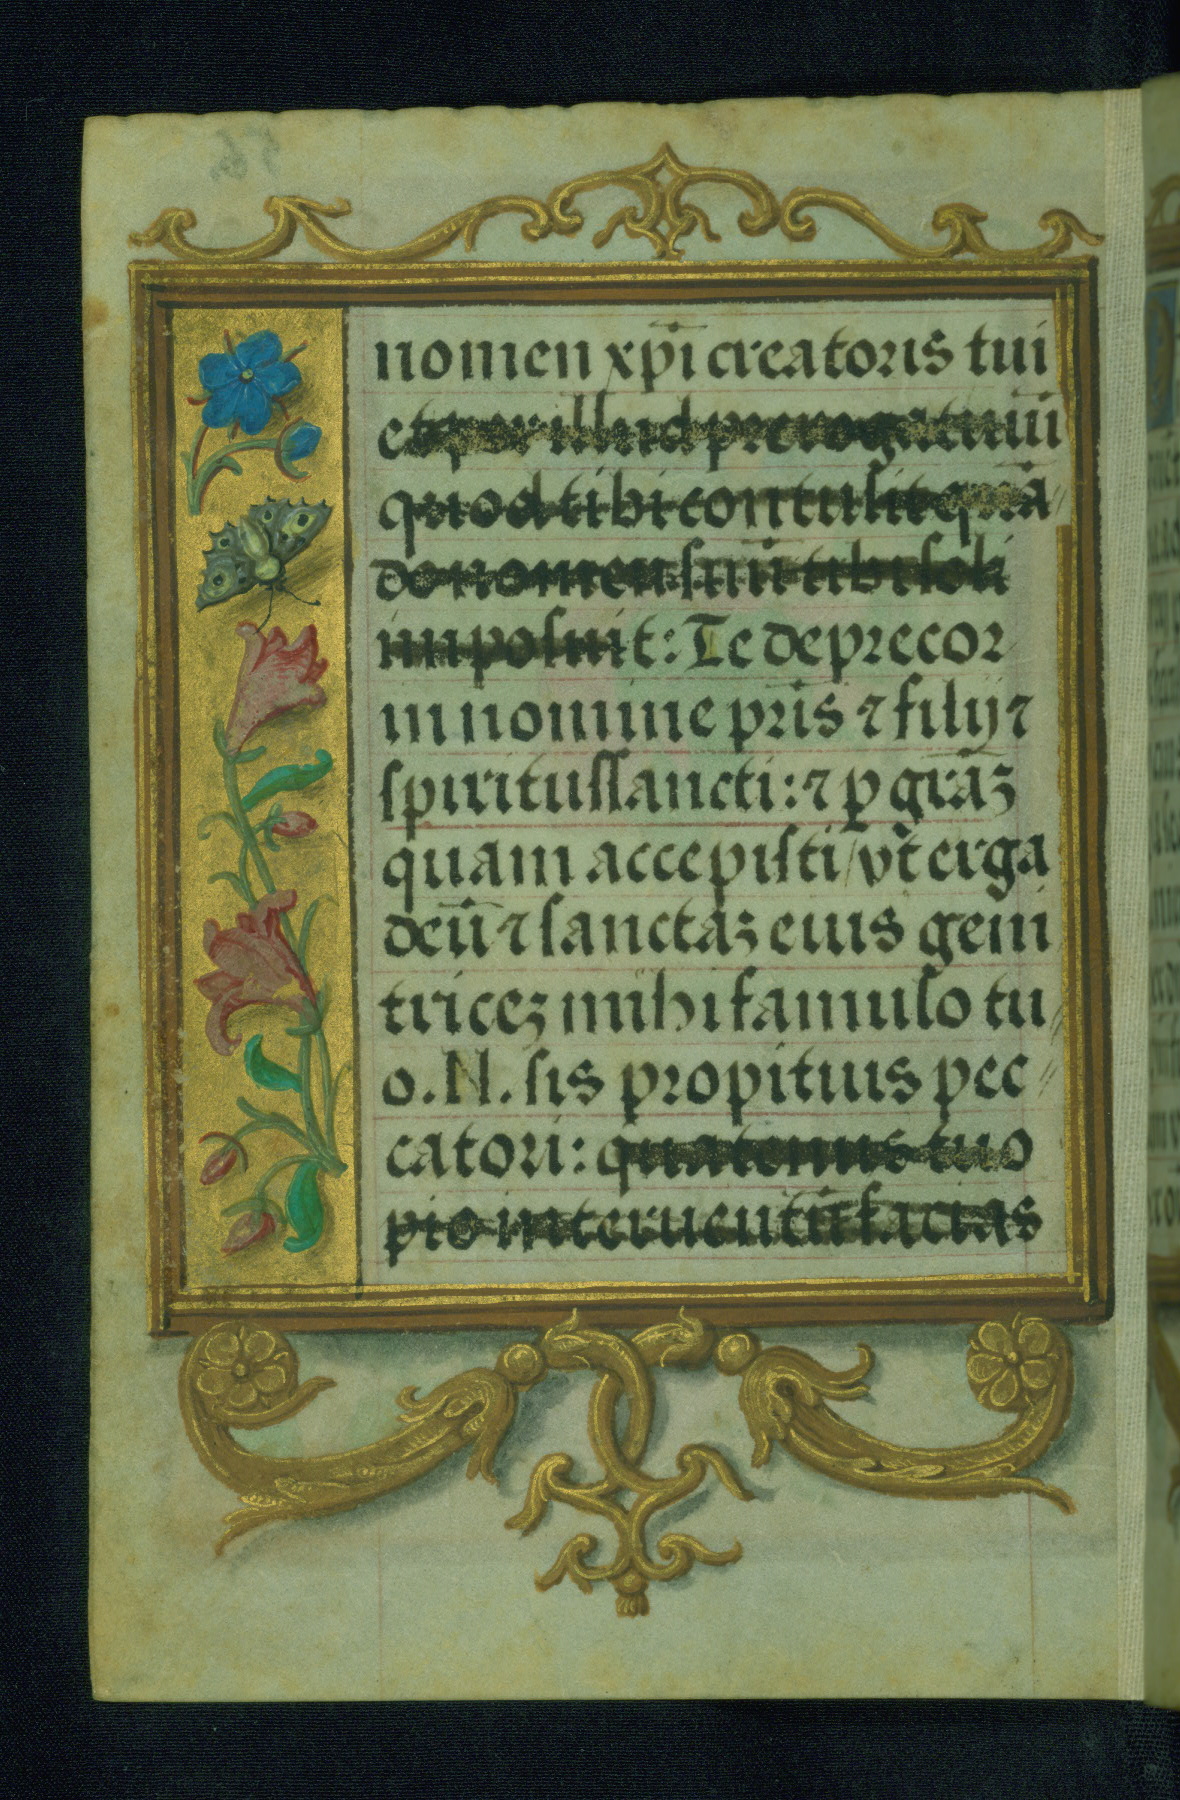 nomen xp̄i creatoris tui
et per illud prerogatiuū
quod tibi contulit quā〃
do nomen suū tibi soli
imposuit: Te deprecor
in nomine pr̄is ⁊ filij ⁊
spiritussancti: ⁊ p gr̄aꝫ
quam accepisti / vt̄ erga
deū ⁊ sanctāꝫ eius geni
triceꝫ mihi famulo tu〃
o. N. sis propitius pec〃
catori: quatenus tuo
pio interuentu facias